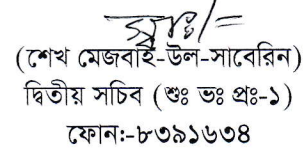 স্বাঃ/=
(শেখ মেজবাই-উল-সাবেরিন)
দ্বিতীয় সচিব (শুঃ ভঃ প্রঃ-১)
ফোন:-৮৩৯১৬৩৪